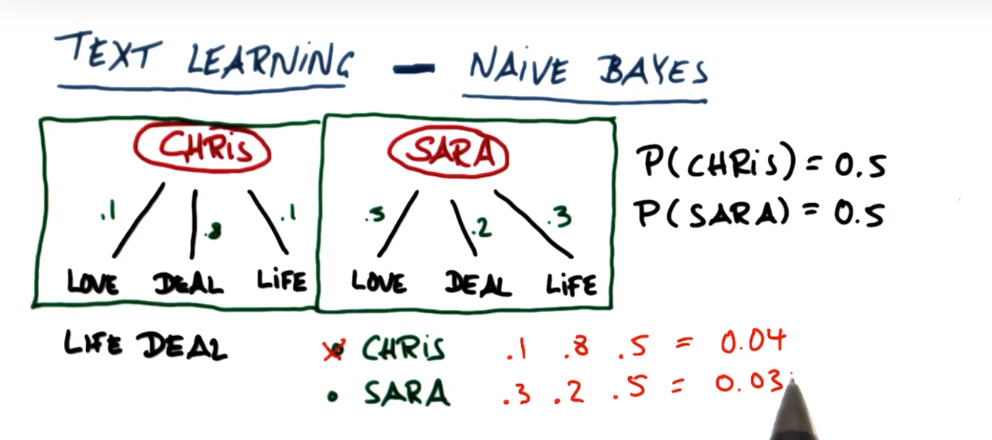 TEXT LEARNING — NAIVE BAYES
CHRIS
.1 .8 .1
LOVE DEAL LIFE
SARA
.5 .2 .3
LOVE DEAL LIFE
P(CHRIS) = 0.5
P(SARA) = 0.5
LIFE DEAL
CHRIS .1 .8 .5 = 0.04
SARA .3 .2 .5 = 0.03